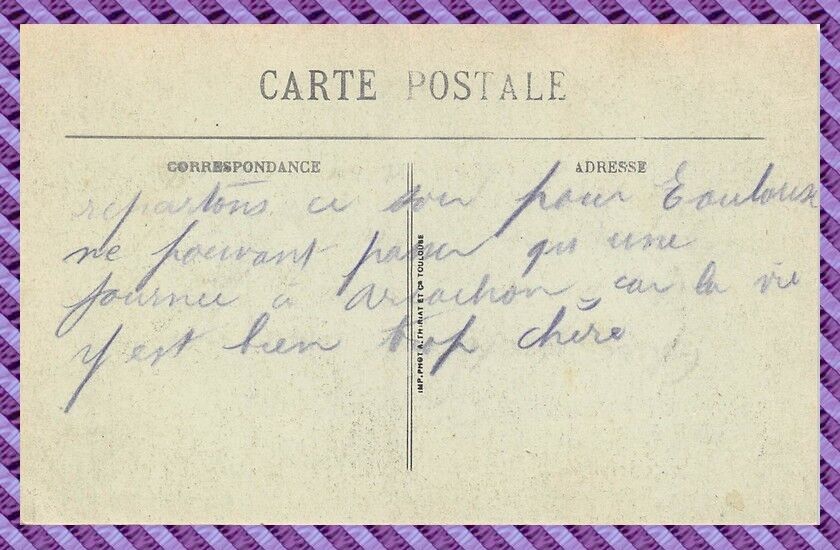 CARTE POSTALE
CORRESPONDANCE
ADRESSE
repartons ce soir pour Toulouse
ne pouvant passer qu'une
journée à Arcachon, car la vie
y est bien trop chère
IMP. PHOT A. THIRIAT ET Cie TOULOUSE